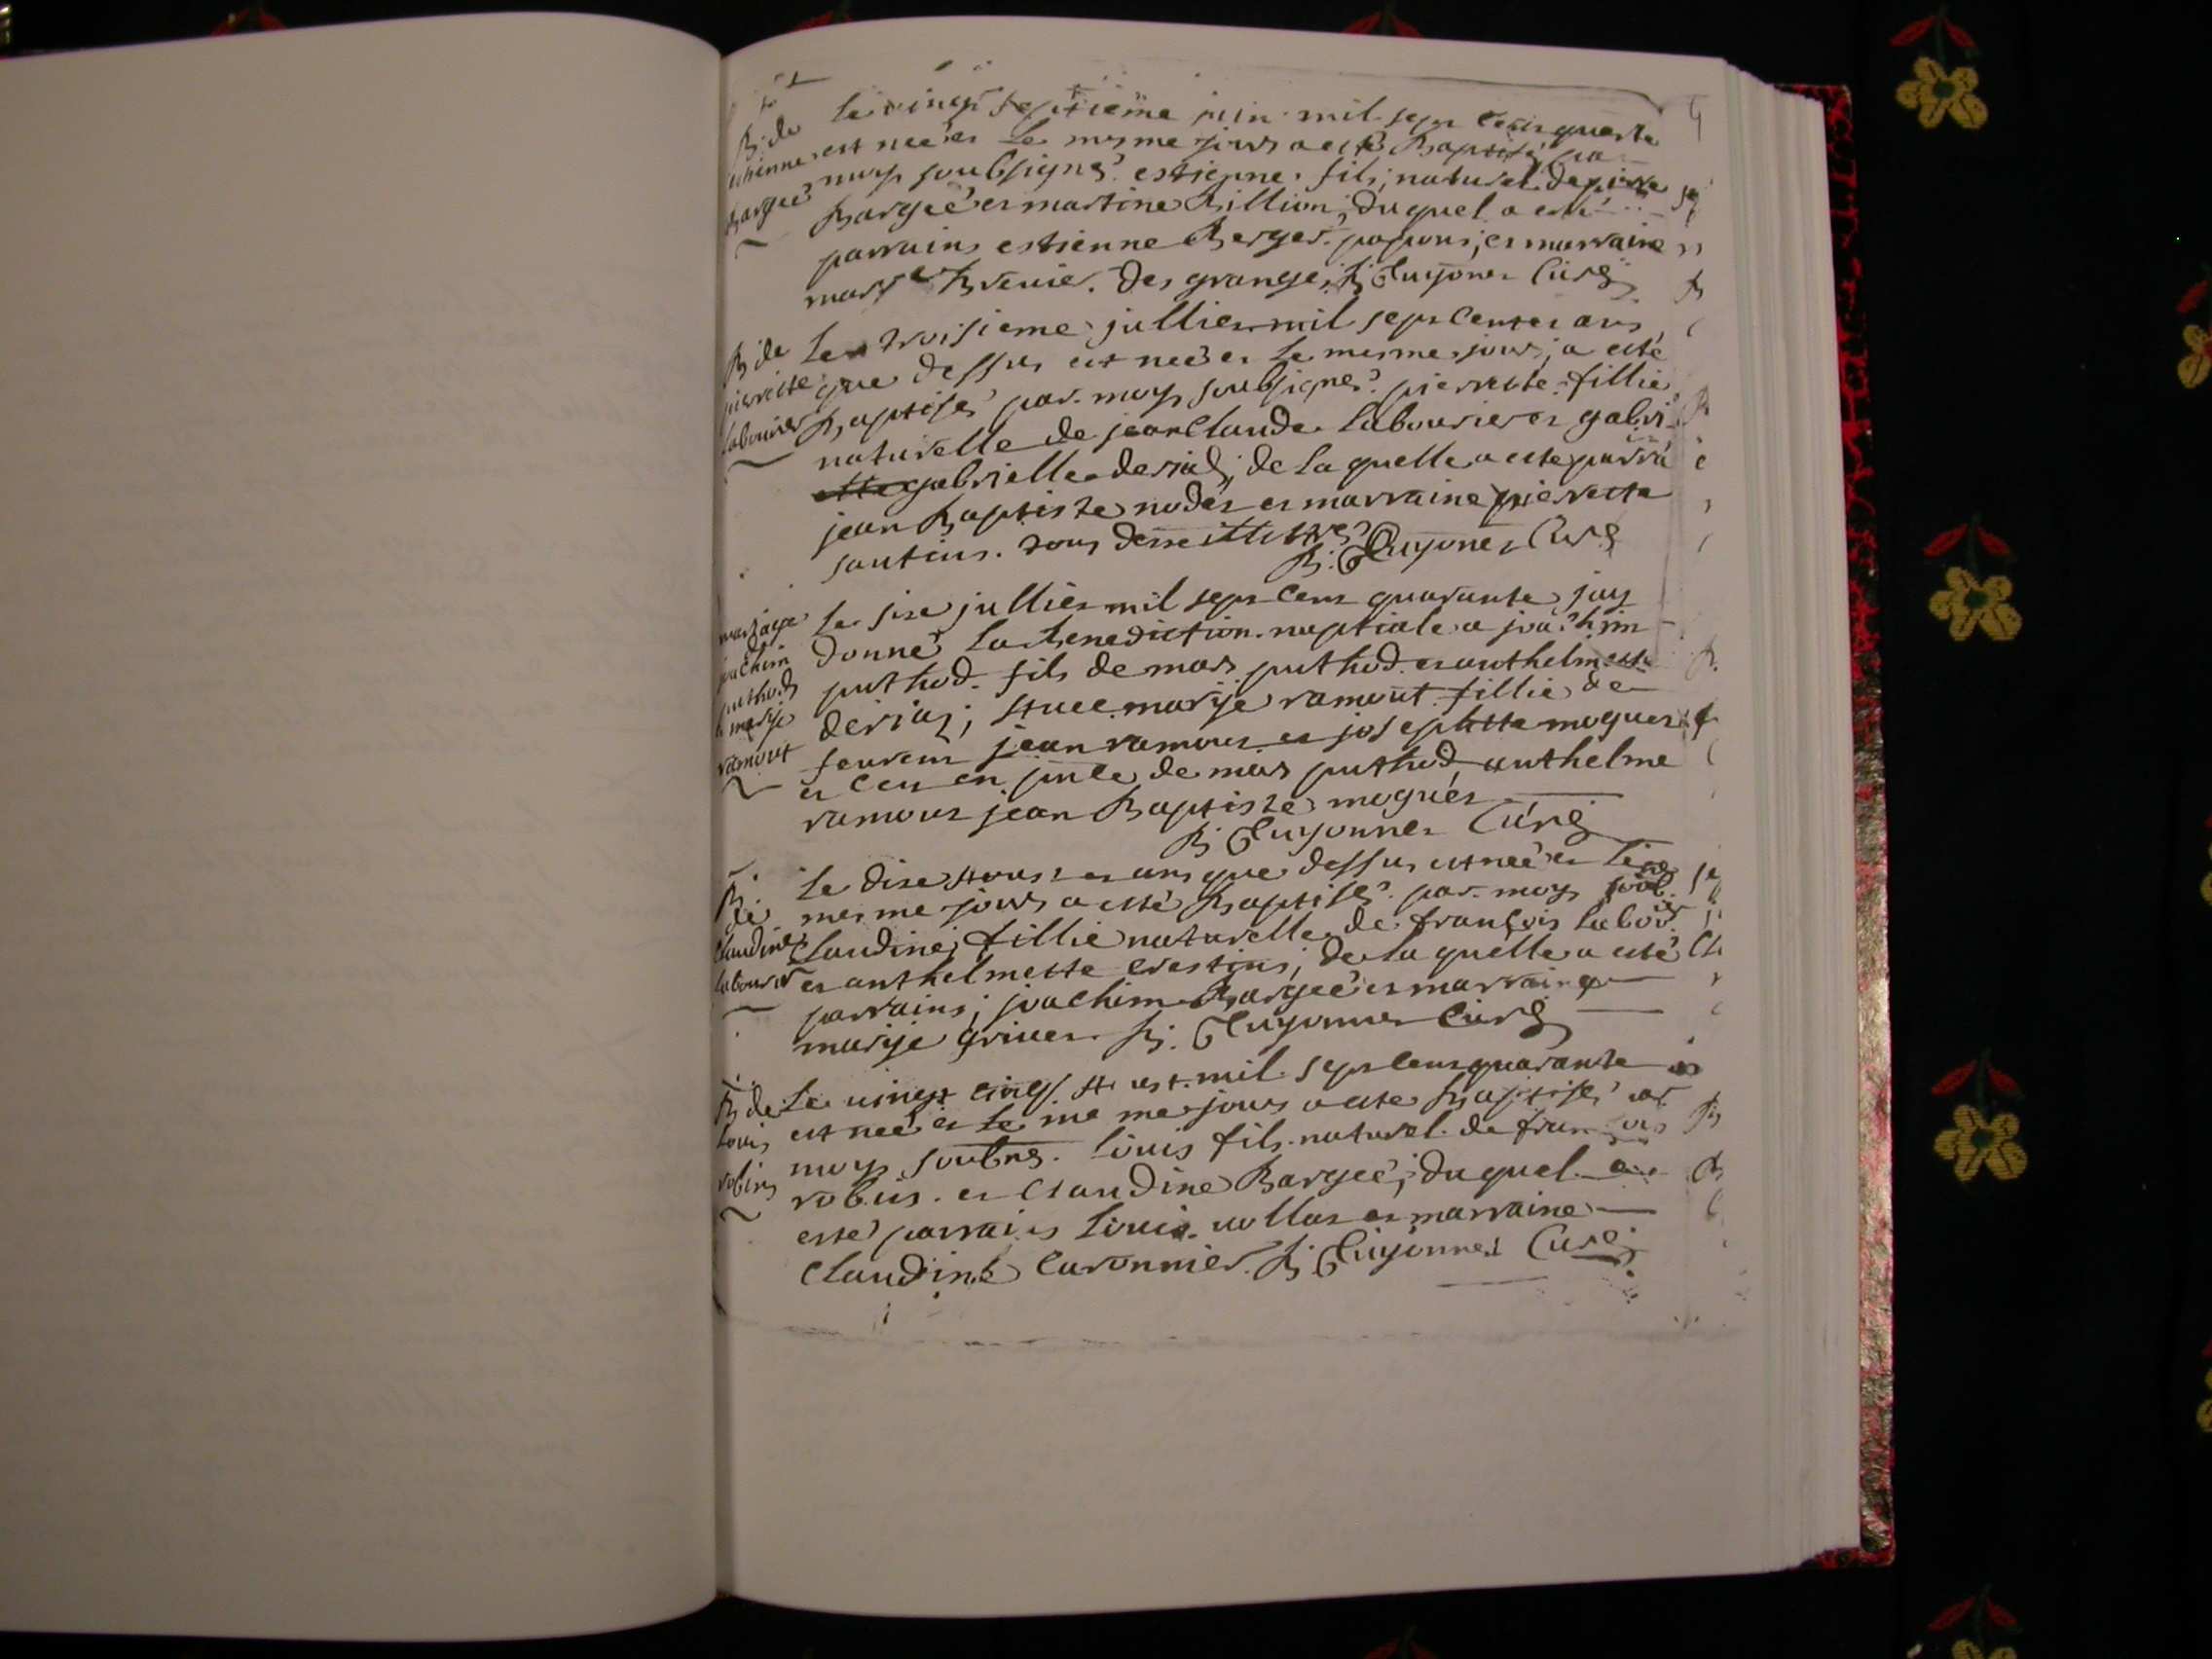 B. de
estienne
Bargeé
Le vingt septieme juin mil sept cens quarente
est neé et le mesme jours a esté Baptisé par
moys soubsigné estienne fils naturel de pierre
Bargeé et martine Billion, du quel a esté
parrains estienne Berger et marraine
Brevier des granges, B. Guyonet Curé
B. de
pierrette
labourier
Le troisieme julliet mil sept cent et ans
que dessus est neé et le mesme jours, a esté
Baptisé par moys soubsigné pierrette fillie
naturelle de jean Claude labourier et gabri
gabrielle de la quelle a esté parra
jean Baptiste nodet et marraine pierrette
santius. tous
B. Guyonet Curé
mariage
de
joachim
puthod
et marije
ramout
Le size julliet mil sept cent quarante jay
donné la Benediction nuptiale a joachim
puthod fils de mar puthod et anthelmette
avec marije ramout fillie de
jean ramout et josephette moguet
et ceu en pnce de mar puthod, anthelme
ramout jean Baptiste moguet
B. Guyonnet Curé
B.
de
Claudine
labourier
Le dixe aoust et ans que dessus est neé et le
mesme jours a esté Baptisé par moys soub.né
Claudine fillie naturelle de françois labour.ier
et anthelmette crestins, de la quelle a esté
parrains, joachim Bargeé et marraine
marije grivet B. Guyonnet Curé
B. de
Louis
robin
Le vingt cinq aust mil sept cens quarante
est neé et le me me jours a esté Baptisé par
moys soubné. Louis fils naturel de françois
robin et Claudine Bargeé, du quel a
esté parrains Louis vollat et marraine
Claudine Caronnier. B. Guyonnet Curé